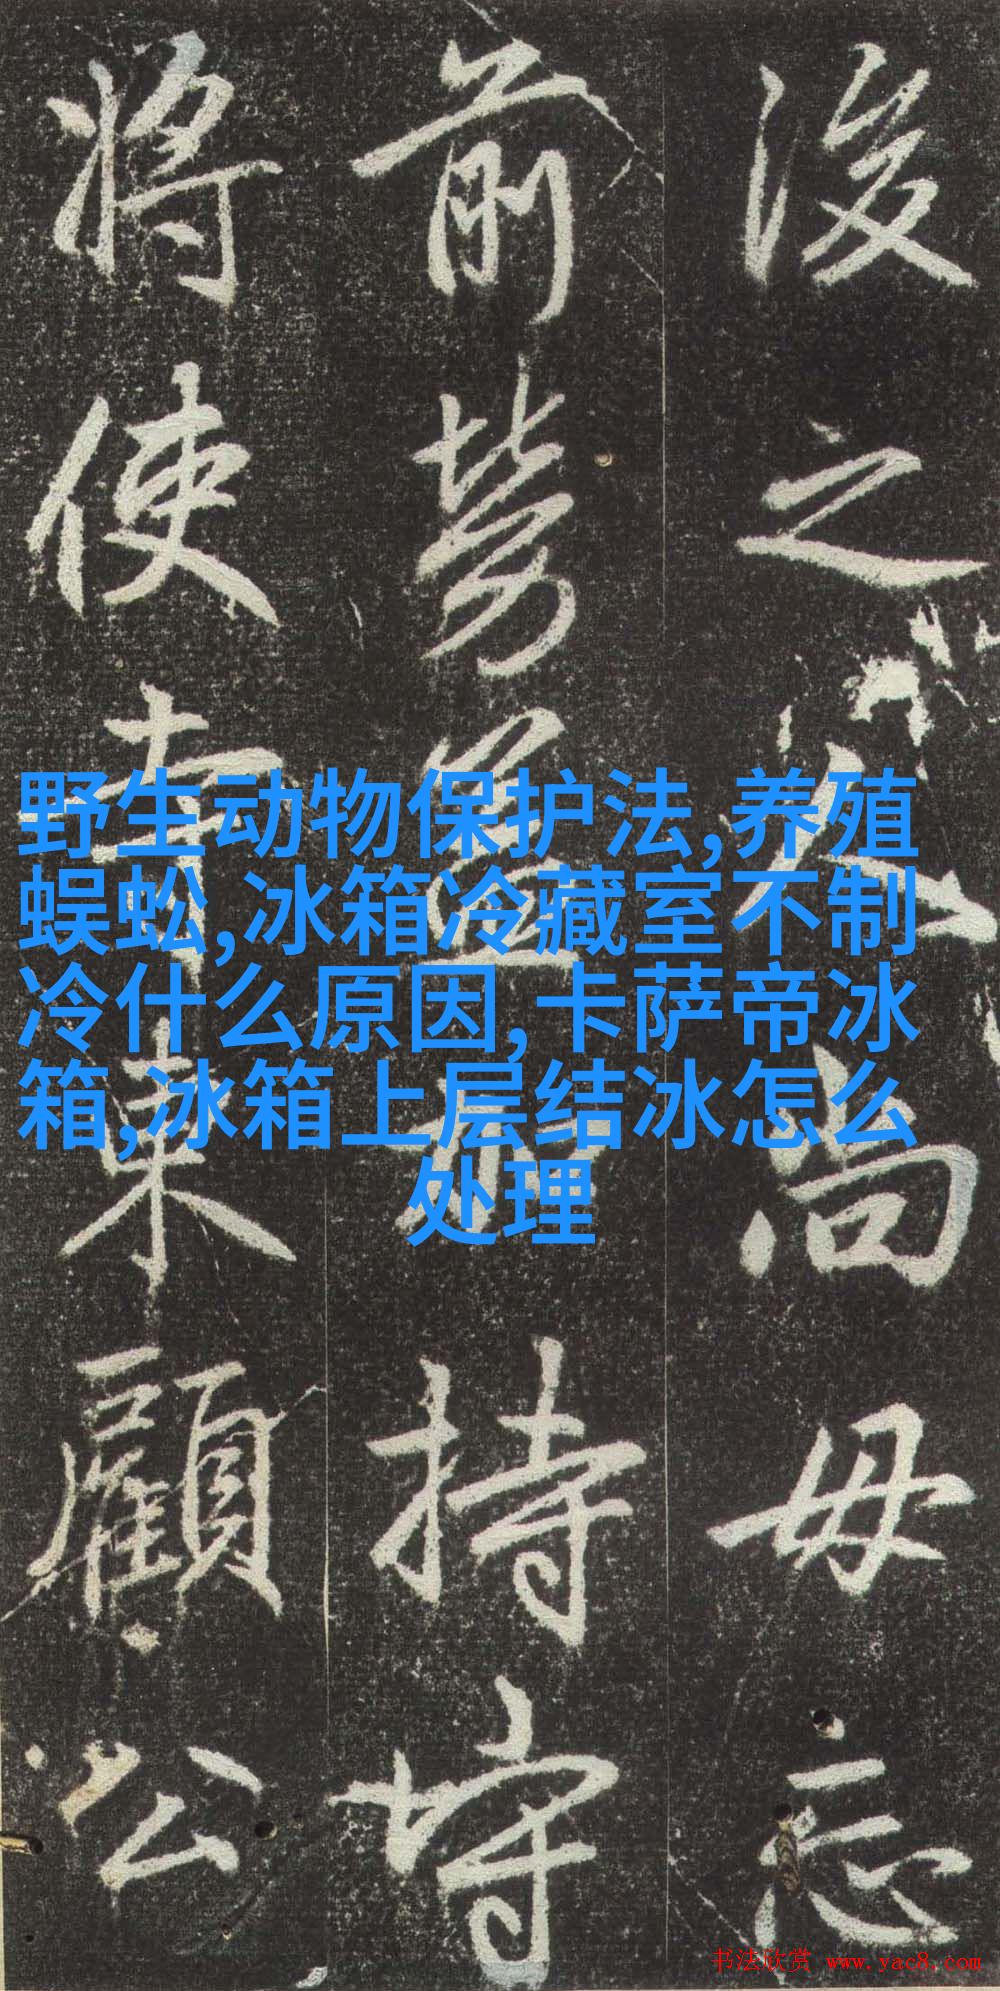 後之人尚毋忘
前勞益加持守
将使顧公
野生动物保护法,养殖
蜈蚣,冰箱冷藏室不制
冷什么原因,卡萨帝冰
箱,冰箱上层结冰怎么
处理
书法欣赏 www.yac8.com